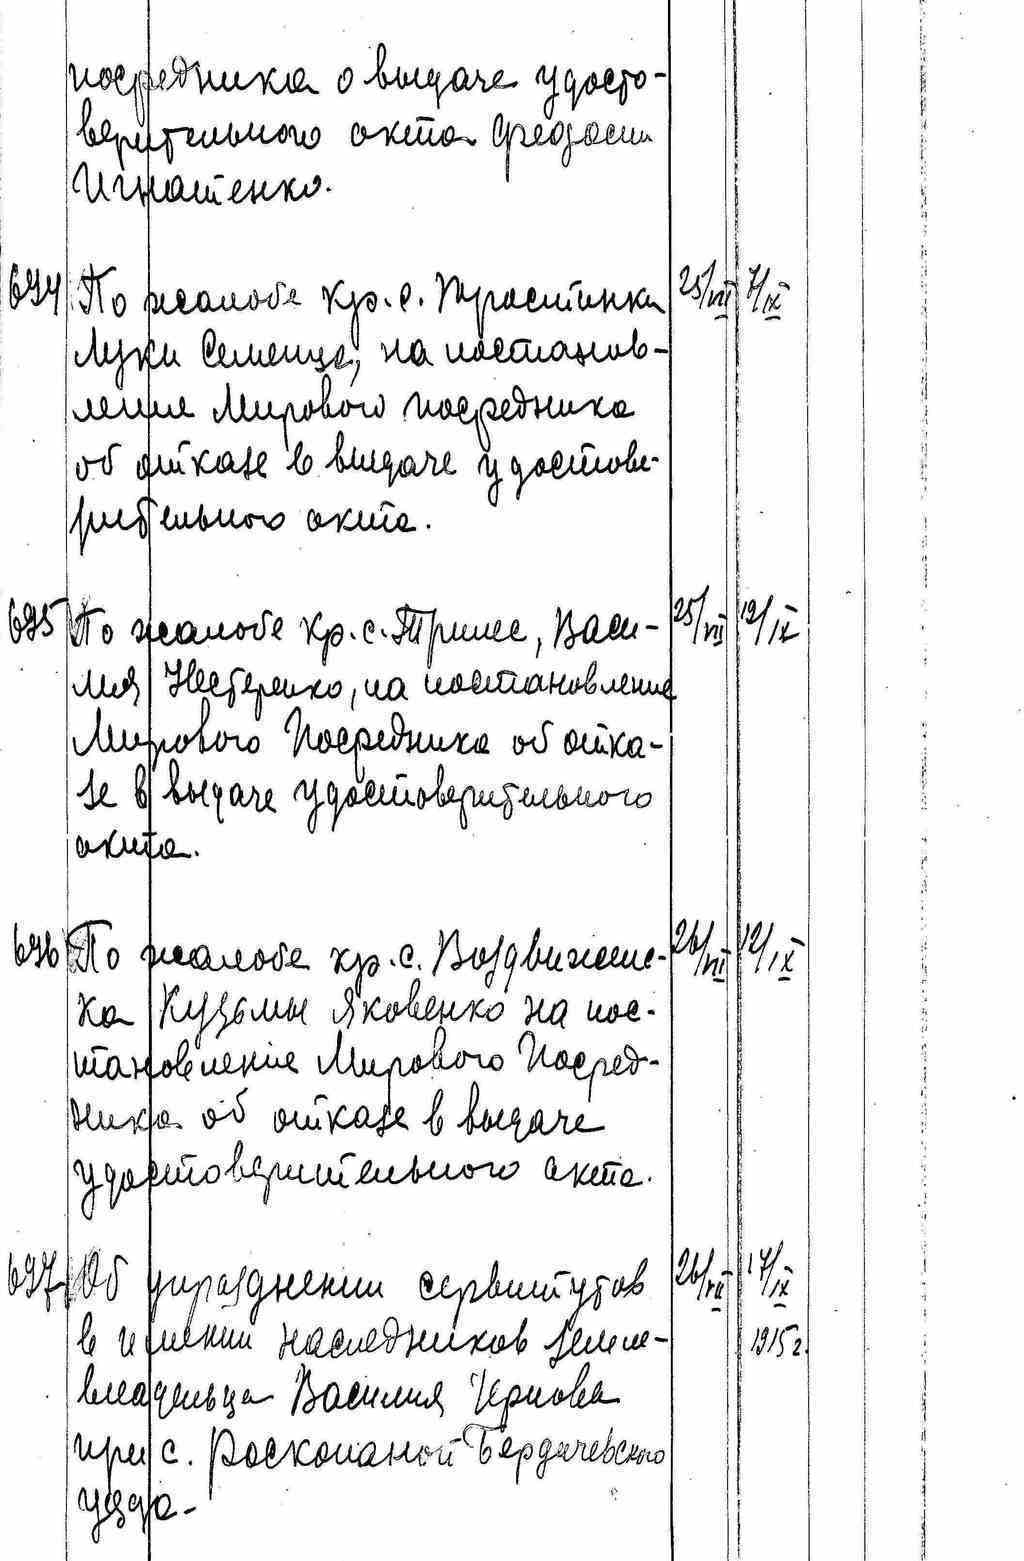 посредника о выдаче удосто-
верительного акта Феодосии
Игнатенко.
694 По жалобе кр. с. Тростинки 25/VII 7/IX
Луки Семенца, на постанов-
ление Мирового посредника
об отказе в выдаче удостове-
рительного акта.
695 По жалобе кр. с. Триле, Васи- 25/VII 12/IX
лия Нестеренко, на постановление
Мирового Посредника об отка-
зе в выдаче удостоверительного
акта.
696 По жалобе кр. с. Воздвиженс- 26/VII 12/IX
ка Кузьмы Яковенко на пос-
тановление Мирового Посред-
ника об отказе в выдаче
удостоверительного акта.
697 Об упразднении сервитутов 26/VII 17/IX
в имении наследников земле- 1915 г.
владельца Василия Чернова
при с. Роскопаной Бердичевского
уезда-